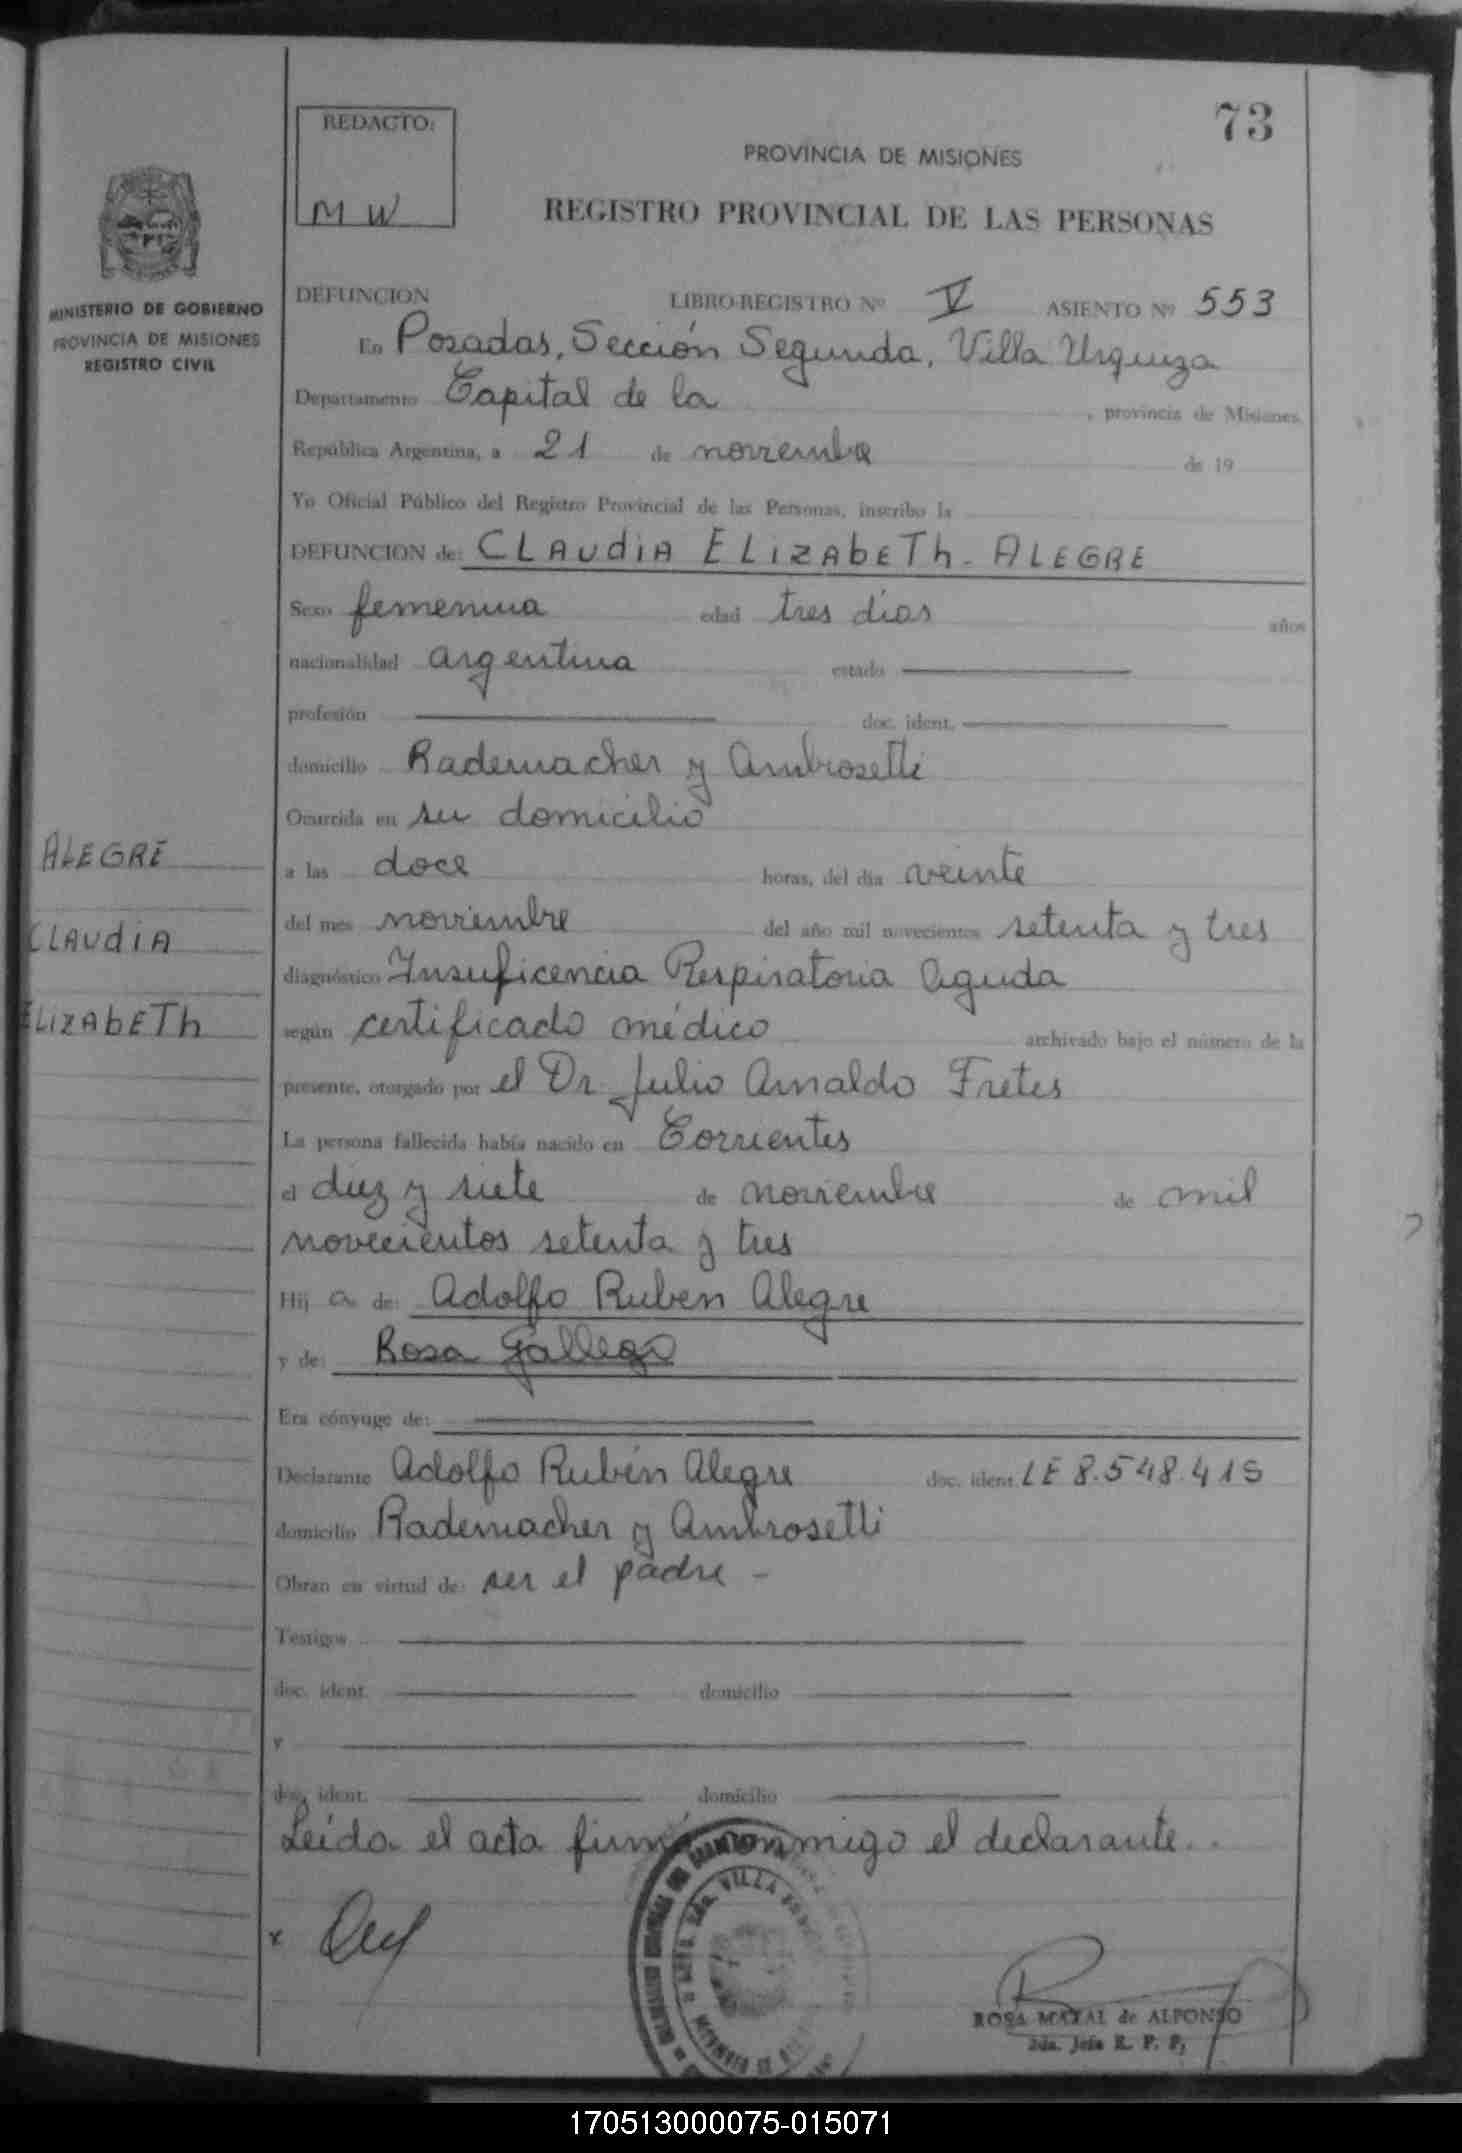 73
REDACTO:
M W
PROVINCIA DE MISIONES
REGISTRO PROVINCIAL DE LAS PERSONAS
MINISTERIO DE GOBIERNO
PROVINCIA DE MISIONES
REGISTRO CIVIL
DEFUNCION LIBRO-REGISTRO Nº V ASIENTO Nº 553
En Posadas, Sección Segunda, Villa Urquiza
Departamento Capital de la , provincia de Misiones,
República Argentina, a 21 de noviembre de 19
Yo Oficial Público del Registro Provincial de las Personas, inscribo la
DEFUNCION de: CLAUdiA ELIZAbETh - ALEGRE
Sexo femenina edad tres días años
nacionalidad argentina estado
profesión doc. ident.
domicilio Rademacher y Ambrosetti
Ocurrida en su domicilio
ALEGRE
a las doce horas, del día veinte
CLAUdiA
del mes noviembre del año mil novecientos setenta y tres
diagnóstico Insuficencia Respiratoria Aguda
ELIZAbETh
según certificado médico archivado bajo el número de la
presente, otorgado por el Dr. Julio Arnaldo Fretes
La persona fallecida había nacido en Corrientes
el diez y siete de noviembre de mil
novecientos setenta y tres
Hij a de: Adolfo Ruben Alegre
y de: Rosa Gallego
Era cónyuge de:
Declarante Adolfo Rubén Alegre doc. ident. LE 8.548.415
domicilio Rademacher y Ambrosetti
Obran en virtud de: ser el padre -
Testigos
doc. ident. domicilio
y
doc. ident. domicilio
Leida el acta firma conmigo el declarante..
x
ROSA MAZAL de ALFONSO
2da. Jefa R. P. P.
170513000075-015071